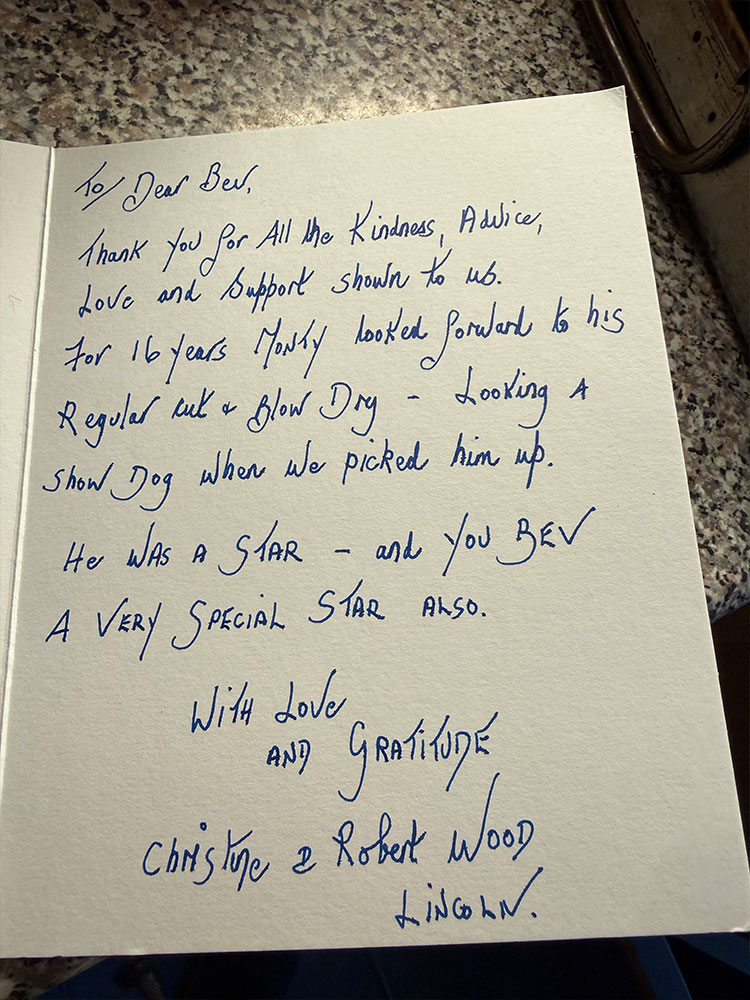 To/ Dear Bev,
Thank You for All the Kindness, Advice,
Love and Support shown to us.
For 16 years Monty looked forward to his
Regular cut & Blow Dry - Looking A
Show Dog when we picked him up.
He WAS A STAR - and You BEV
A VERY SPECIAL STAR ALSO.
WITH Love
AND GRATITUDE
Christine & Robert WOOD
LINCOLN.